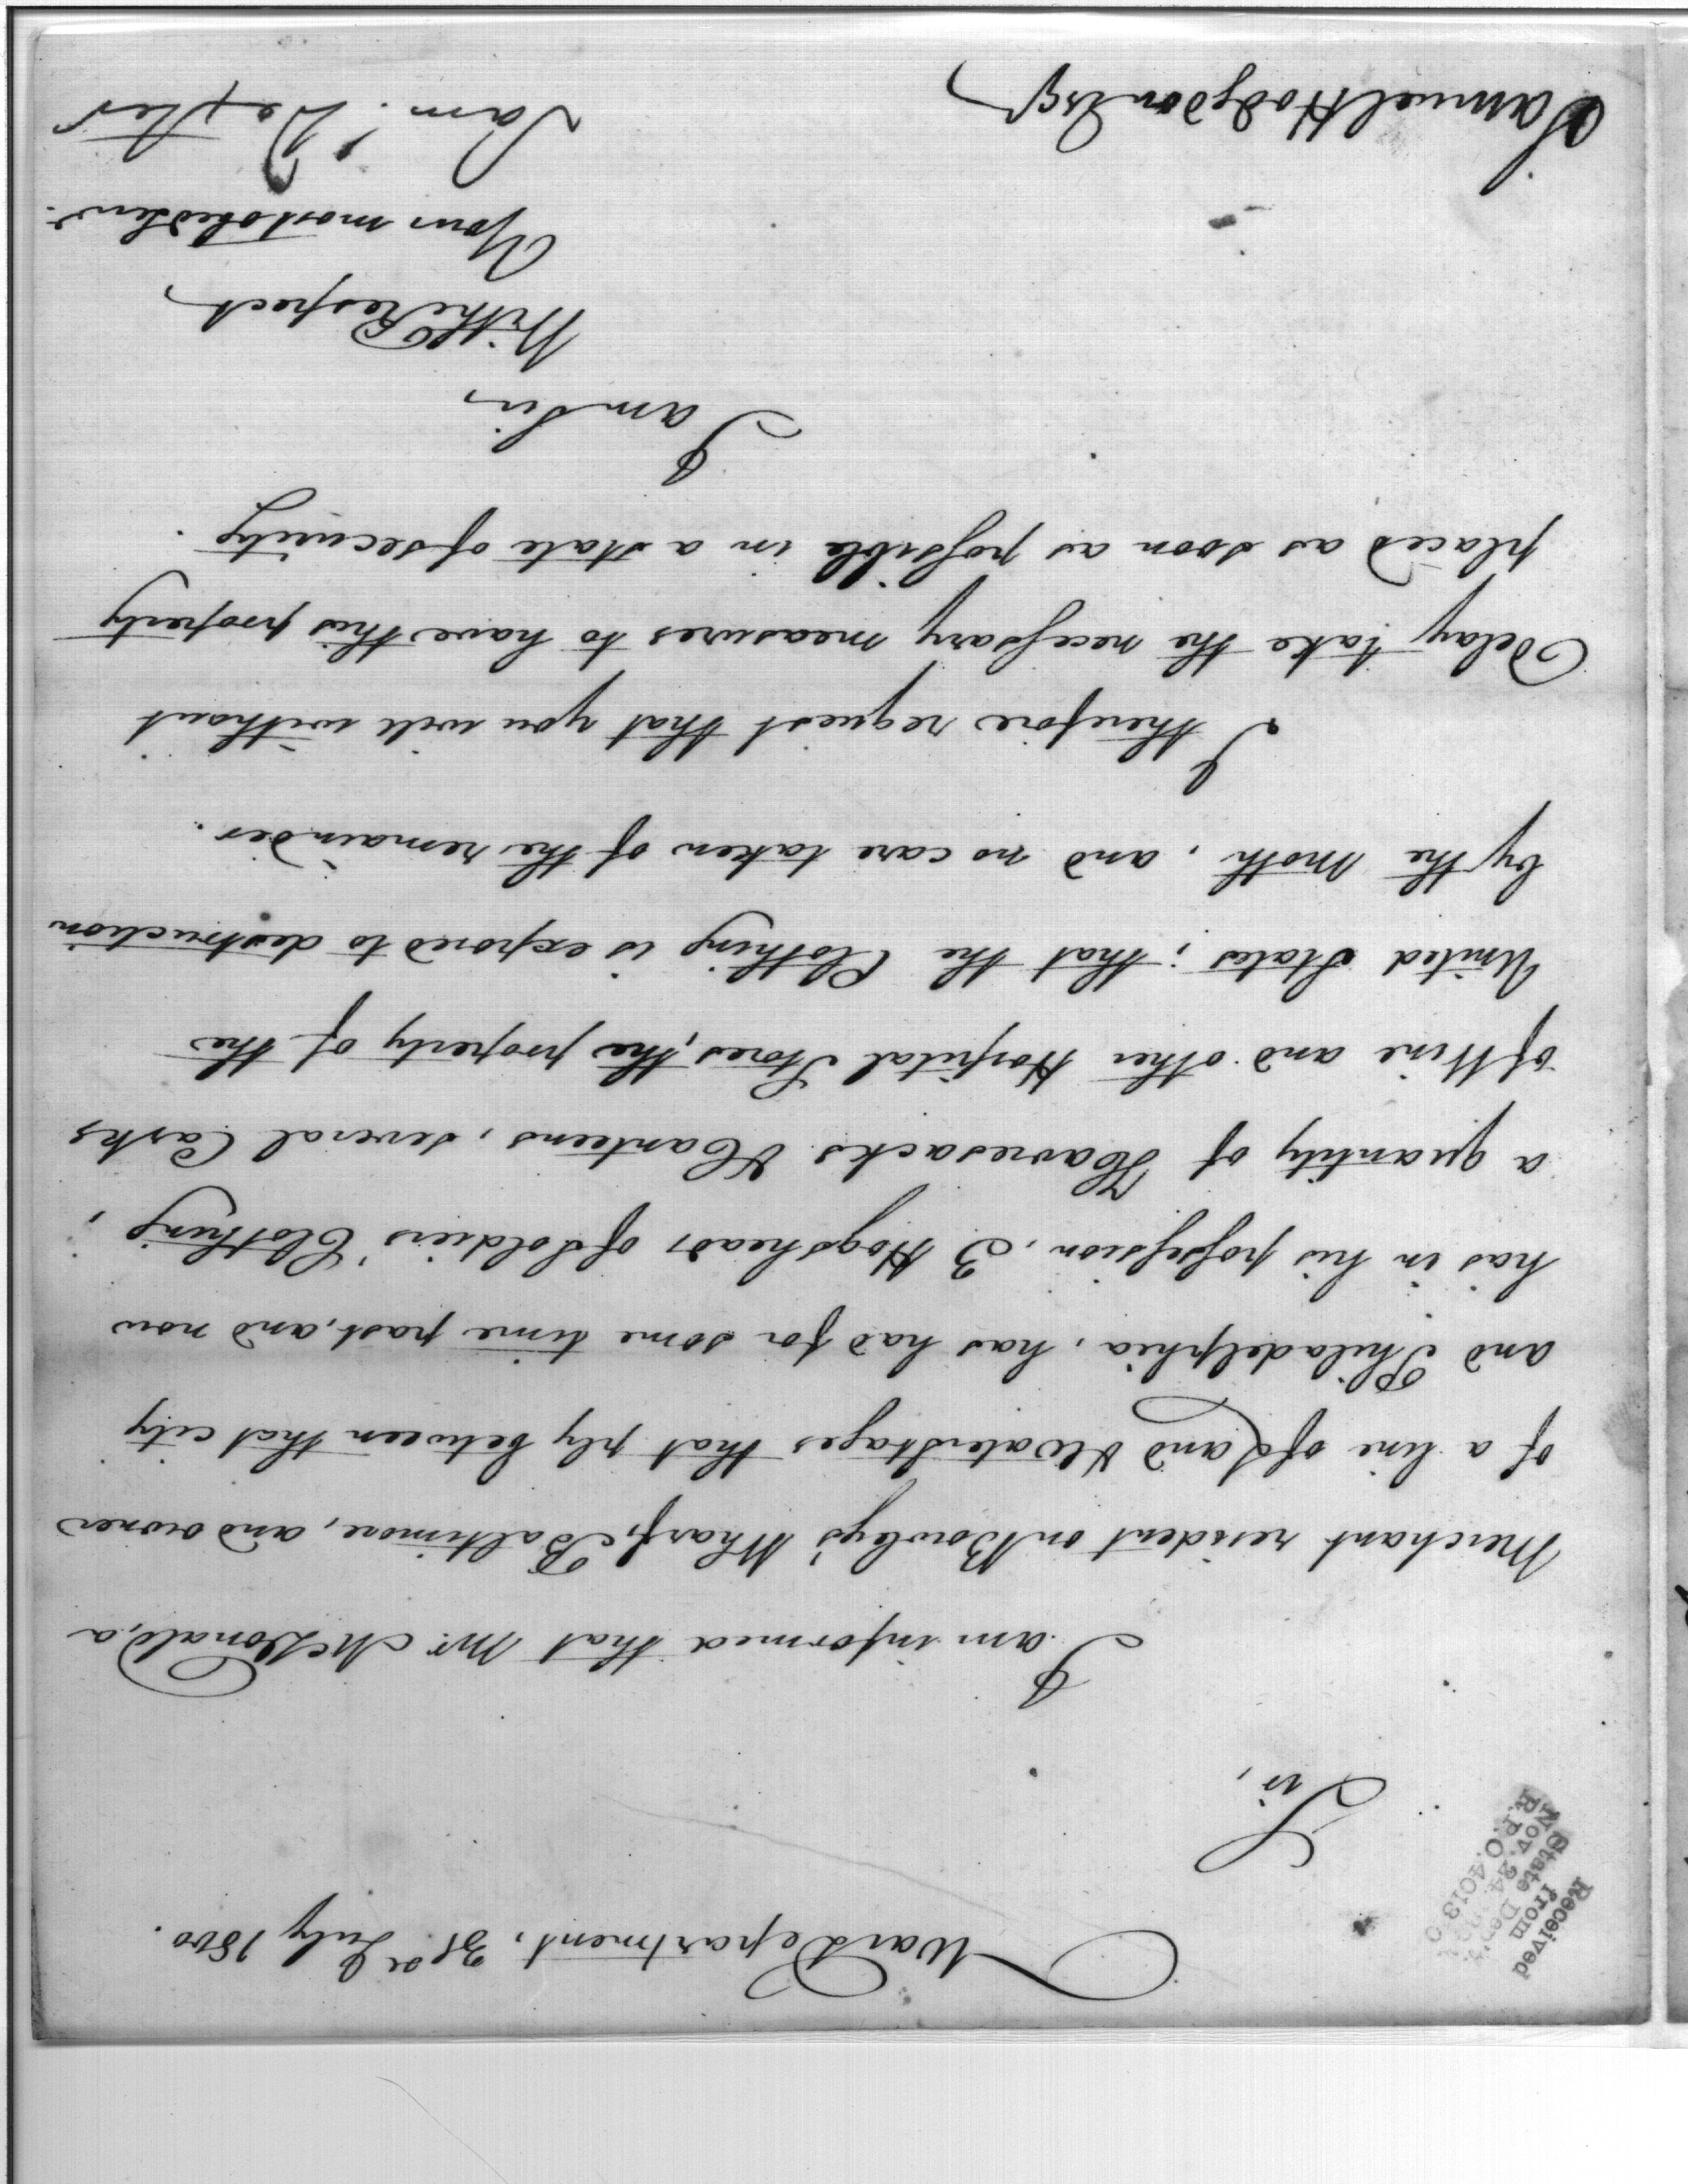 Received
from
State Dep't.
Nov. 24
R.P.O. 4013-0
War Department, 31st July 1800.
Sir,
I am informed that Mr. McDonald, a
Merchant resident on Bowley's Wharf, Baltimore, and owner
of a line of Land & Water Stages that ply between that city
and Philadelphia, has had for some time past, and now
has in his possession, 3 Hogsheads of Soldiers' Clothing,
a quantity of Haversacks & Canteens, several Casks
of Wine and other Hospital Stores, the property of the
United States; that the Clothing is exposed to destruction
by the moth, and no care taken of the remainder.
I therefore request that you will without
delay take the necessary measures to have this property
placed as soon as possible in a state of security.
I am Sir,
With Respect
Your most obed Servt.
Sam. Dexter
Samuel Hodgdon Esqr